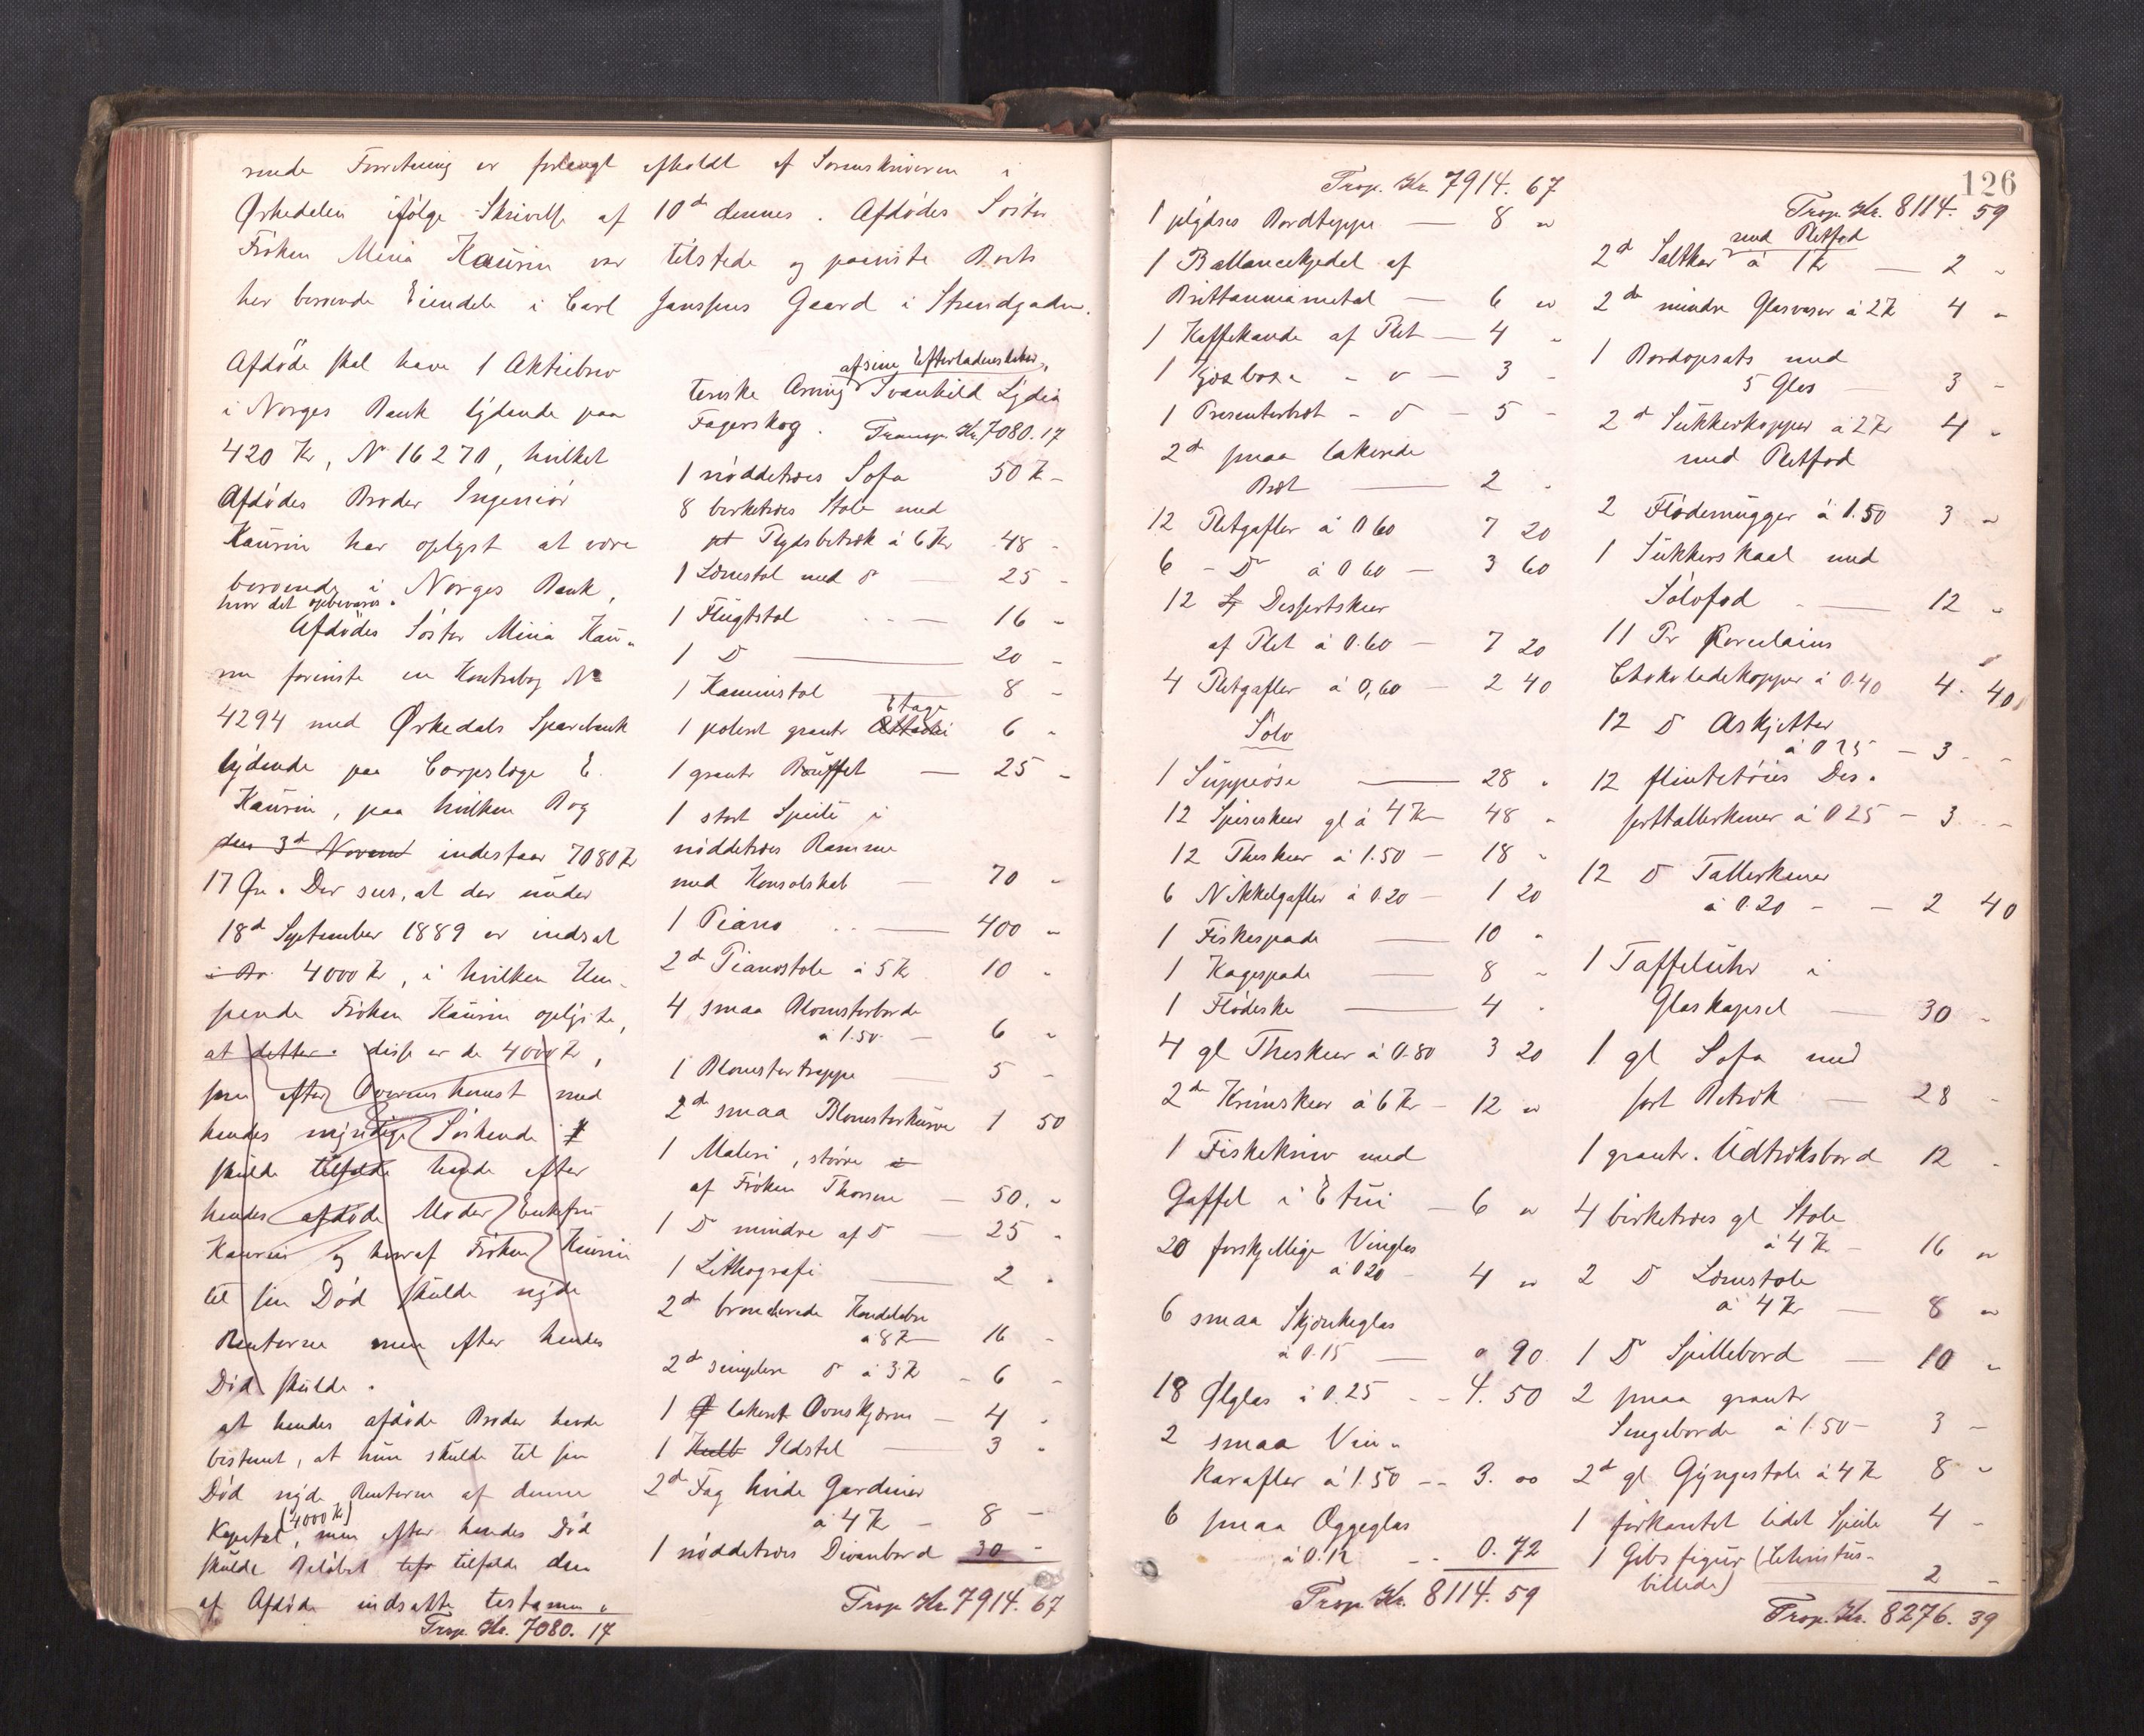 rende Forretning er forlangt afholdt af Sorenskriveren i
Ørkedalen ifølge Skrivelse af 10de dennes. Afdødes Søster
Frøken Mina Kaurin var tilstede og paaviste Boets
her beroende Eiendele i Carl Janssens Gaard i Strandgaden.
Afdøde skal have 1 Aktiebrev
i Norges Bank lydende paa
420 Kr, No 16270, hvilket
Afdødes Broder Ingeniør
Kaurin har oplyst at være
beroende i Norges Bank,
hvor det opbevares.
Afdødes Søster Mina Kau-
rin foreviste en Kontrabog No
4294 med Ørkedals Sparebank
lydende paa Corpslæge E.
Kaurin, paa hvilken Bog
den 3de Novemb indestaar 7080 Kr
17 Øre. Der sees, at der under
18de September 1889 er indsat
4000 Kr, i hvilken Hen-
seende Frøken Kaurin oplyste,
at dette disse er de 4000 Kr,
som efter Overenskomst med
hendes myndige Søskende
skulde tilfalde hende efter
hendes afdøde Moder Enkefru
Kaurin og heraf Frøken Kaurin
til sin Død skulde nyde
Renterne men efter hendes
Død skulde.
at hendes afdøde Broder havde
bestemt, at hun skulde til sin
Død nyde Renterne af denne
(4000 Kr)
Kapital, men efter hendes Død
skulde Beløbet tilfalde den
af Afdøde indsatte testamen-
Trsp. Kr. 7080. 17
af sine Efterladenskaber,
teriske Arving Svanhild Lydia
Fagerskog. Transp. Kr. 7080.17
1 nøddetræes Sofa 50 Kr -
8 birketræes Stole med
Plydsbetræk à 6 Kr 48 -
1 Lænestol med do 25 -
1 Flugtstol 16 -
1 Do 20 -
1 Kaminstol 8 -
Etage
1 poleret grantr 6 -
1 grantr Bouffet 25 -
1 stort Speile i
nøddetræes Ramme
med Konsolskab 70 -
1 Piano 400 -
2de Pianostole à 5 Kr 10 -
4 smaa Blomsterborde
à 1.50 - 6 -
1 Blomstertrappe 5 -
2de smaa Blomsterkurve 1 50
1 Maleri, større
af Frøken Thorsen - 50. -
1 Do mindre af Do - 25 -
1 Lithografi 2 -
2de broncerede Kandelabre
à 8 Kr 16 -
2de simplere do à 3 Kr - 6 -
1 lakeret Ovnskjærm - 4 -
1 Ildstel 3 -
2de Fag hvide Gardiner
à 4 Kr - 8 -
1 nøddetræes Divanbord 30 -
Trsp. Kr. 7914. 67
Trsp. Kr. 7914. 67
1 plydses Bordteppe - 8 "
1 Ballancekjedel af
Brittanniametal - 6 "
1 Kaffekande af Plet - 4 -
1 - do - 3 -
1 Presenterbræt - do - 5 -
2de smaa lakerede
Bræt 2 -
12 Pletgafler à 0 60 7 20
6 - Do à 0 60 - 3 60
12 Dessertskeer
af Plet à 0.60 - 7 20
4 Pletgafler à 0,60 - 2 40
Sølv
1 Suppeøse 28 -
12 Spiseskeer gl à 4 Kr 48 -
12 Theskeer à 1.50 - 18 -
6 Nikkelgafler à 0.20 - 1 20
1 Fiskespade 10 -
1 Kagespade 8 -
1 Flødeske 4 -
4 gl Theskeer à 0.80 3 20
2de Krumskeer à 6 Kr - 12 "
1 Fiskekniv med
Gaffel i Etui - 6 "
20 forskjellige Vinglas
à 0 20 - 4 "
6 smaa Skjænkeglas
à 0.15 - " 90
18 Ølglas à 0.25 - - 4. 50
2 smaa Vin-
karafler à 1.50 - - 3. 00
6 smaa Æggeglas
à 0.12 - - 0. 72
Trsp. Kr. 8114. 59
126
Trsp. Kr. 8114. 59
med Pletfod
2de Saltkar à 1 Kr - 2 -
2de mindre Glasvaser à 2 Kr 4 -
1 Bordopsats med
5 Glas 3 -
2de Sukkerkopper à 2 Kr 4 -
med Pletfod
2 Flødemugger à 1.50 3 "
1 Sukkerskaal med
Sølvfod - 12 -
11 Pr Porcelains
Chokoladekopper à 0.40 4. 40
12 Do Askjetter
à 0 25 - 3 - -
12 flintetøies Des-
serttallerkener à 0 25 - 3 - -
12 Do Tallerkener
à 0.20 - - 2 40
1 Taffeluhr i
Glaskapsel 30 -
1 gl Sofa med
sort Betræk 28 -
1 grantr. Udtræksbord 12 -
4 birketræes gl Stole
à 4 Kr - 16 "
2 Do Lænestole
à 4 Kr - 8 "
1 Do Spillebord - 10 -
2 smaa grantr
Sengeborde à 1.50 - 3 -
2de gl Gyngestole à 4 Kr 8 -
1 firkantet lidet Speile 4 -
1 Gibsfigur (Christus-
billede) 2 -
Trsp. Kr. 8276. 39